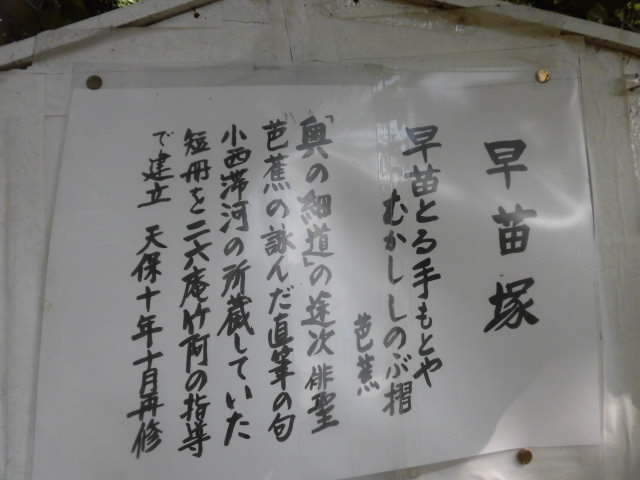 早苗塚
早苗とる手もとや
むかししのぶ摺
芭蕉
「奥の細道」の途次俳聖
芭蕉の詠んだ直筆の句
小西滞河の所蔵していた
短冊を二六庵竹阿の指導
で建立 天保十年十月再修